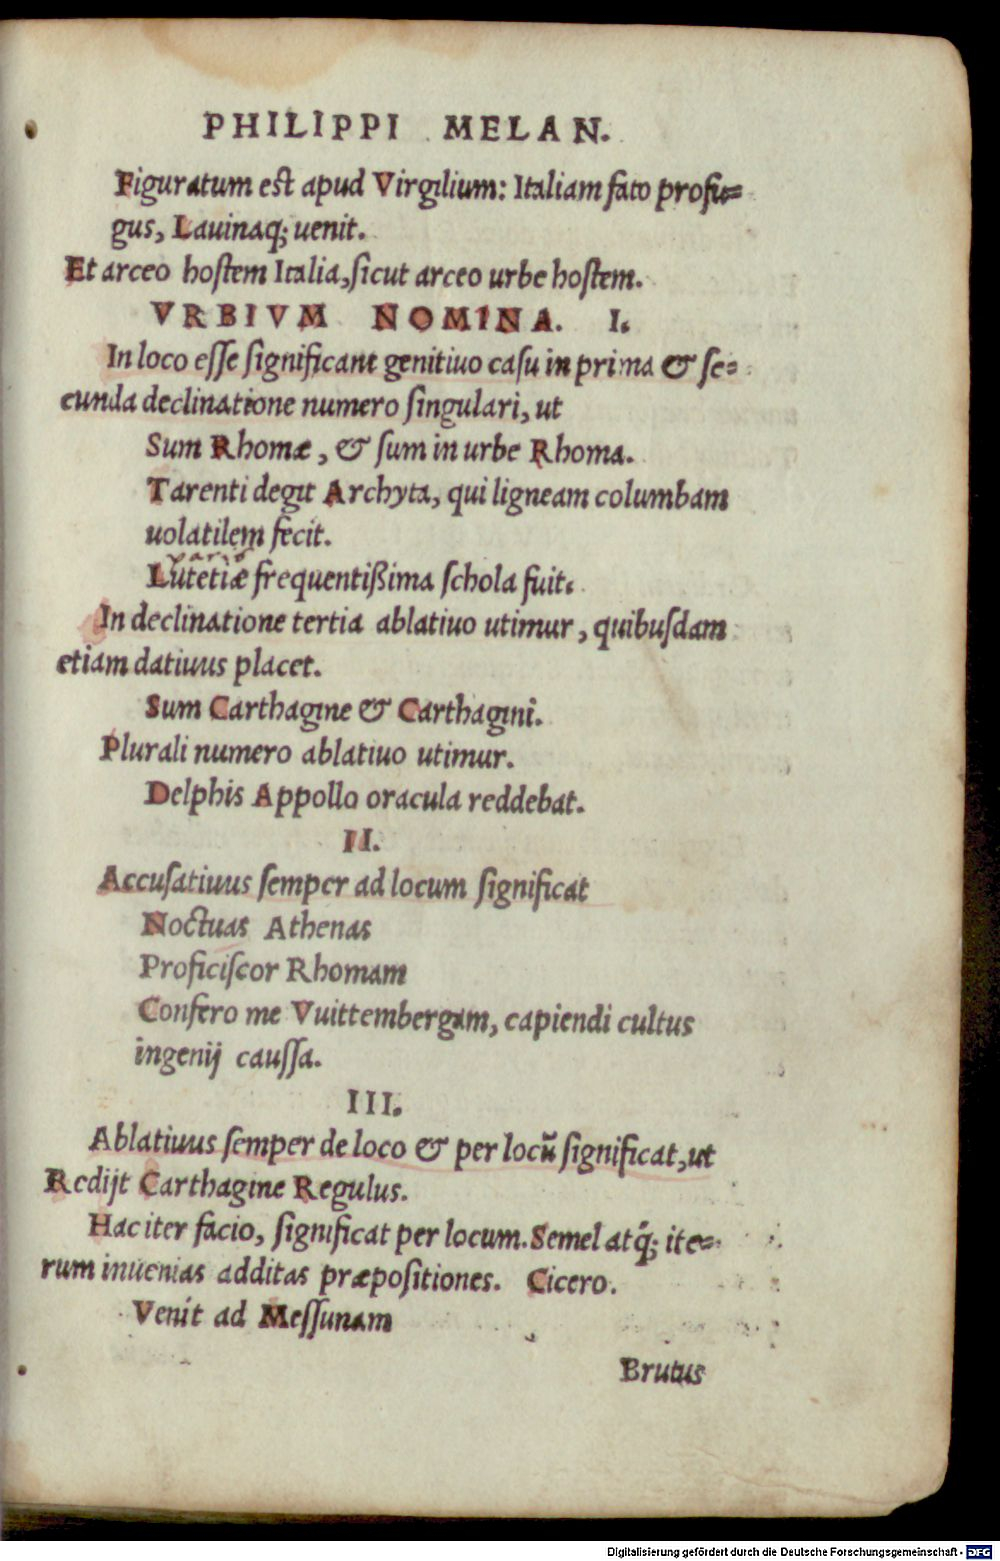 PHILIPPI MELAN.
Figuratum est apud Virgilium: Italiam fato profu⸗
gus, Lauinaq; uenit.
Et arceo hostem Italia, sicut arceo urbe hostem.
VRBIVM NOMINA. I.
In loco esse significant genitiuo casu in prima & se⸗
cunda declinatione numero singulari, ut
Sum Rhomæ, & sum in urbe Rhoma.
Tarenti degit Archyta, qui ligneam columbam
uolatilem fecit.
Lutetiæ frequentißima schola fuit.
In declinatione tertia ablatiuo utimur, quibusdam
etiam datiuus placet.
Sum Carthagine & Carthagini.
Plurali numero ablatiuo utimur.
Delphis Appollo oracula reddebat.
II.
Accusatiuus semper ad locum significat
Noctuas Athenas
Proficiscor Rhomam
Confero me Vuittembergam, capiendi cultus
ingenij caussa.
III.
Ablatiuus semper de loco & per locū significat, ut
Redijt Carthagine Regulus.
Hac iter facio, significat per locum. Semel atq́; ite⸗
rum inuenias additas præpositiones. Cicero.
Venit ad Messunam
Brutus
Digitalisierung gefördert durch die Deutsche Forschungsgemeinschaft - DFG